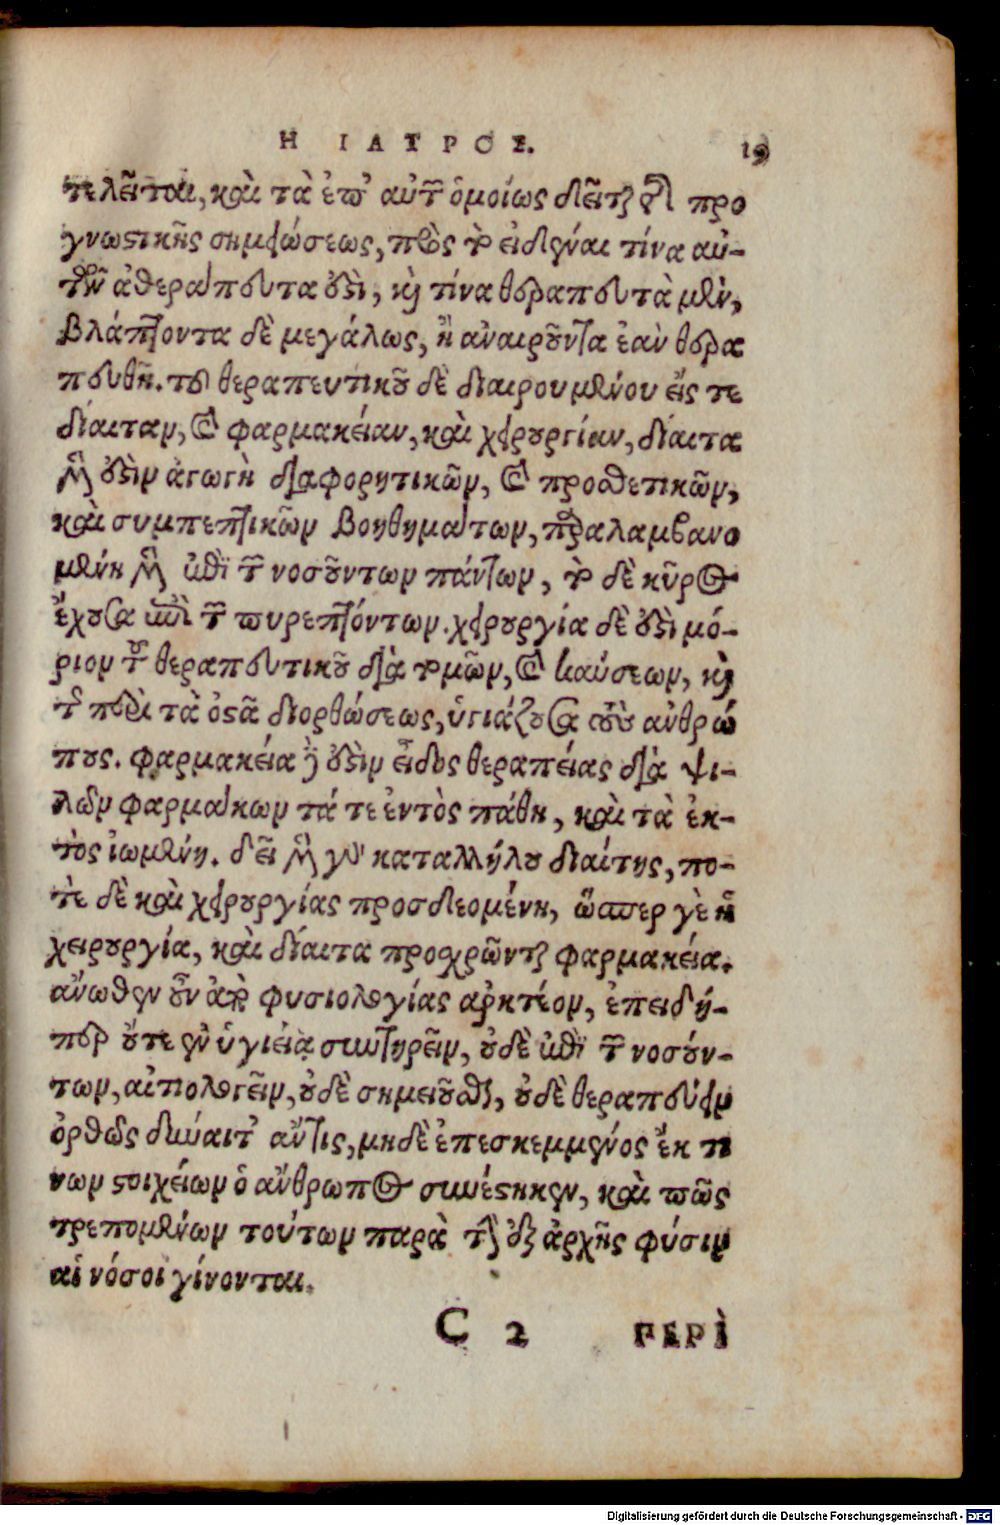 Η ΙΑΤΡΟΣ. 19
τελεῖται, καὶ τὰ ἐπ' αὐτῶν ὁμοίως δεῖται τῆς προ
γνωστικῆς σημειώσεως, πρὸς τὸ εἰδέναι τίνα αὐ-
τῶν ἀθεράπευτα ἐστὶ, καὶ τίνα θεραπευτὰ μὲν,
βλάπτοντα δὲ μεγάλως, ἢ ἀναιροῦντα ἐὰν θερα
πευθῇ. τοῦ θεραπευτικοῦ δὲ διαιρουμένου εἴς τε
δίαιταν, καὶ φαρμακείαν, καὶ χειρουργίαν, δίαιτα
μὲν ἐστὶν ἀγωγὴ διαφορητικῶν, καὶ προσθετικῶν,
καὶ συμπεπτικῶν βοηθημάτων, παραλαμβανο
μένη μὲν ἐπὶ τῶν νοσούντων πάντων, τὸ δὲ κῦρος
ἔχουσα ἐπὶ τῶν πυρεττόντων. χειρουργία δὲ ἐστὶ μό-
ριον τοῦ θεραπευτικοῦ διὰ τομῶν, καὶ καύσεων, καὶ
τῆς περὶ τὰ ὀστᾶ διορθώσεως, ὑγιάζουσα τοὺς ἀνθρώ
πους. φαρμακεία δὲ ἐστὶν εἶδος θεραπείας διὰ ψι-
λῶν φαρμάκων τά τε ἐντὸς πάθη, καὶ τὰ ἐκ-
τὸς ἰωμένη. δεῖ μὲν γὰρ καταλλήλου διαίτης, πο-
τὲ δὲ καὶ χειρουργίας προσδεομένη, ὥσπερ γε ἡ
χειρουργία, καὶ δίαιτα προσχρῶνται φαρμακεία.
ἄνωθεν οὖν ἀπὸ φυσιολογίας ἀρκτέον, ἐπειδή-
περ οὔτε ἐν ὑγιείᾳ συντηρεῖν, οὐδὲ ἐπὶ τῶν νοσούν-
των, αἰτιολογεῖν, οὐδὲ σημειοῦσθαι, οὐδὲ θεραπεύειν
ὀρθῶς δύναιτ' ἄν τις, μηδὲ ἐπεσκεμμένος ἔκ τι
νων στοιχείων ὁ ἄνθρωπος συνέστηκεν, καὶ πῶς
τρεπομένων τούτων παρὰ τὴν ἐξ ἀρχῆς φύσιν
αἱ νόσοι γίνονται.
C 2 ΠΕΡῚ
Digitalisierung gefördert durch die Deutsche Forschungsgemeinschaft - DFG